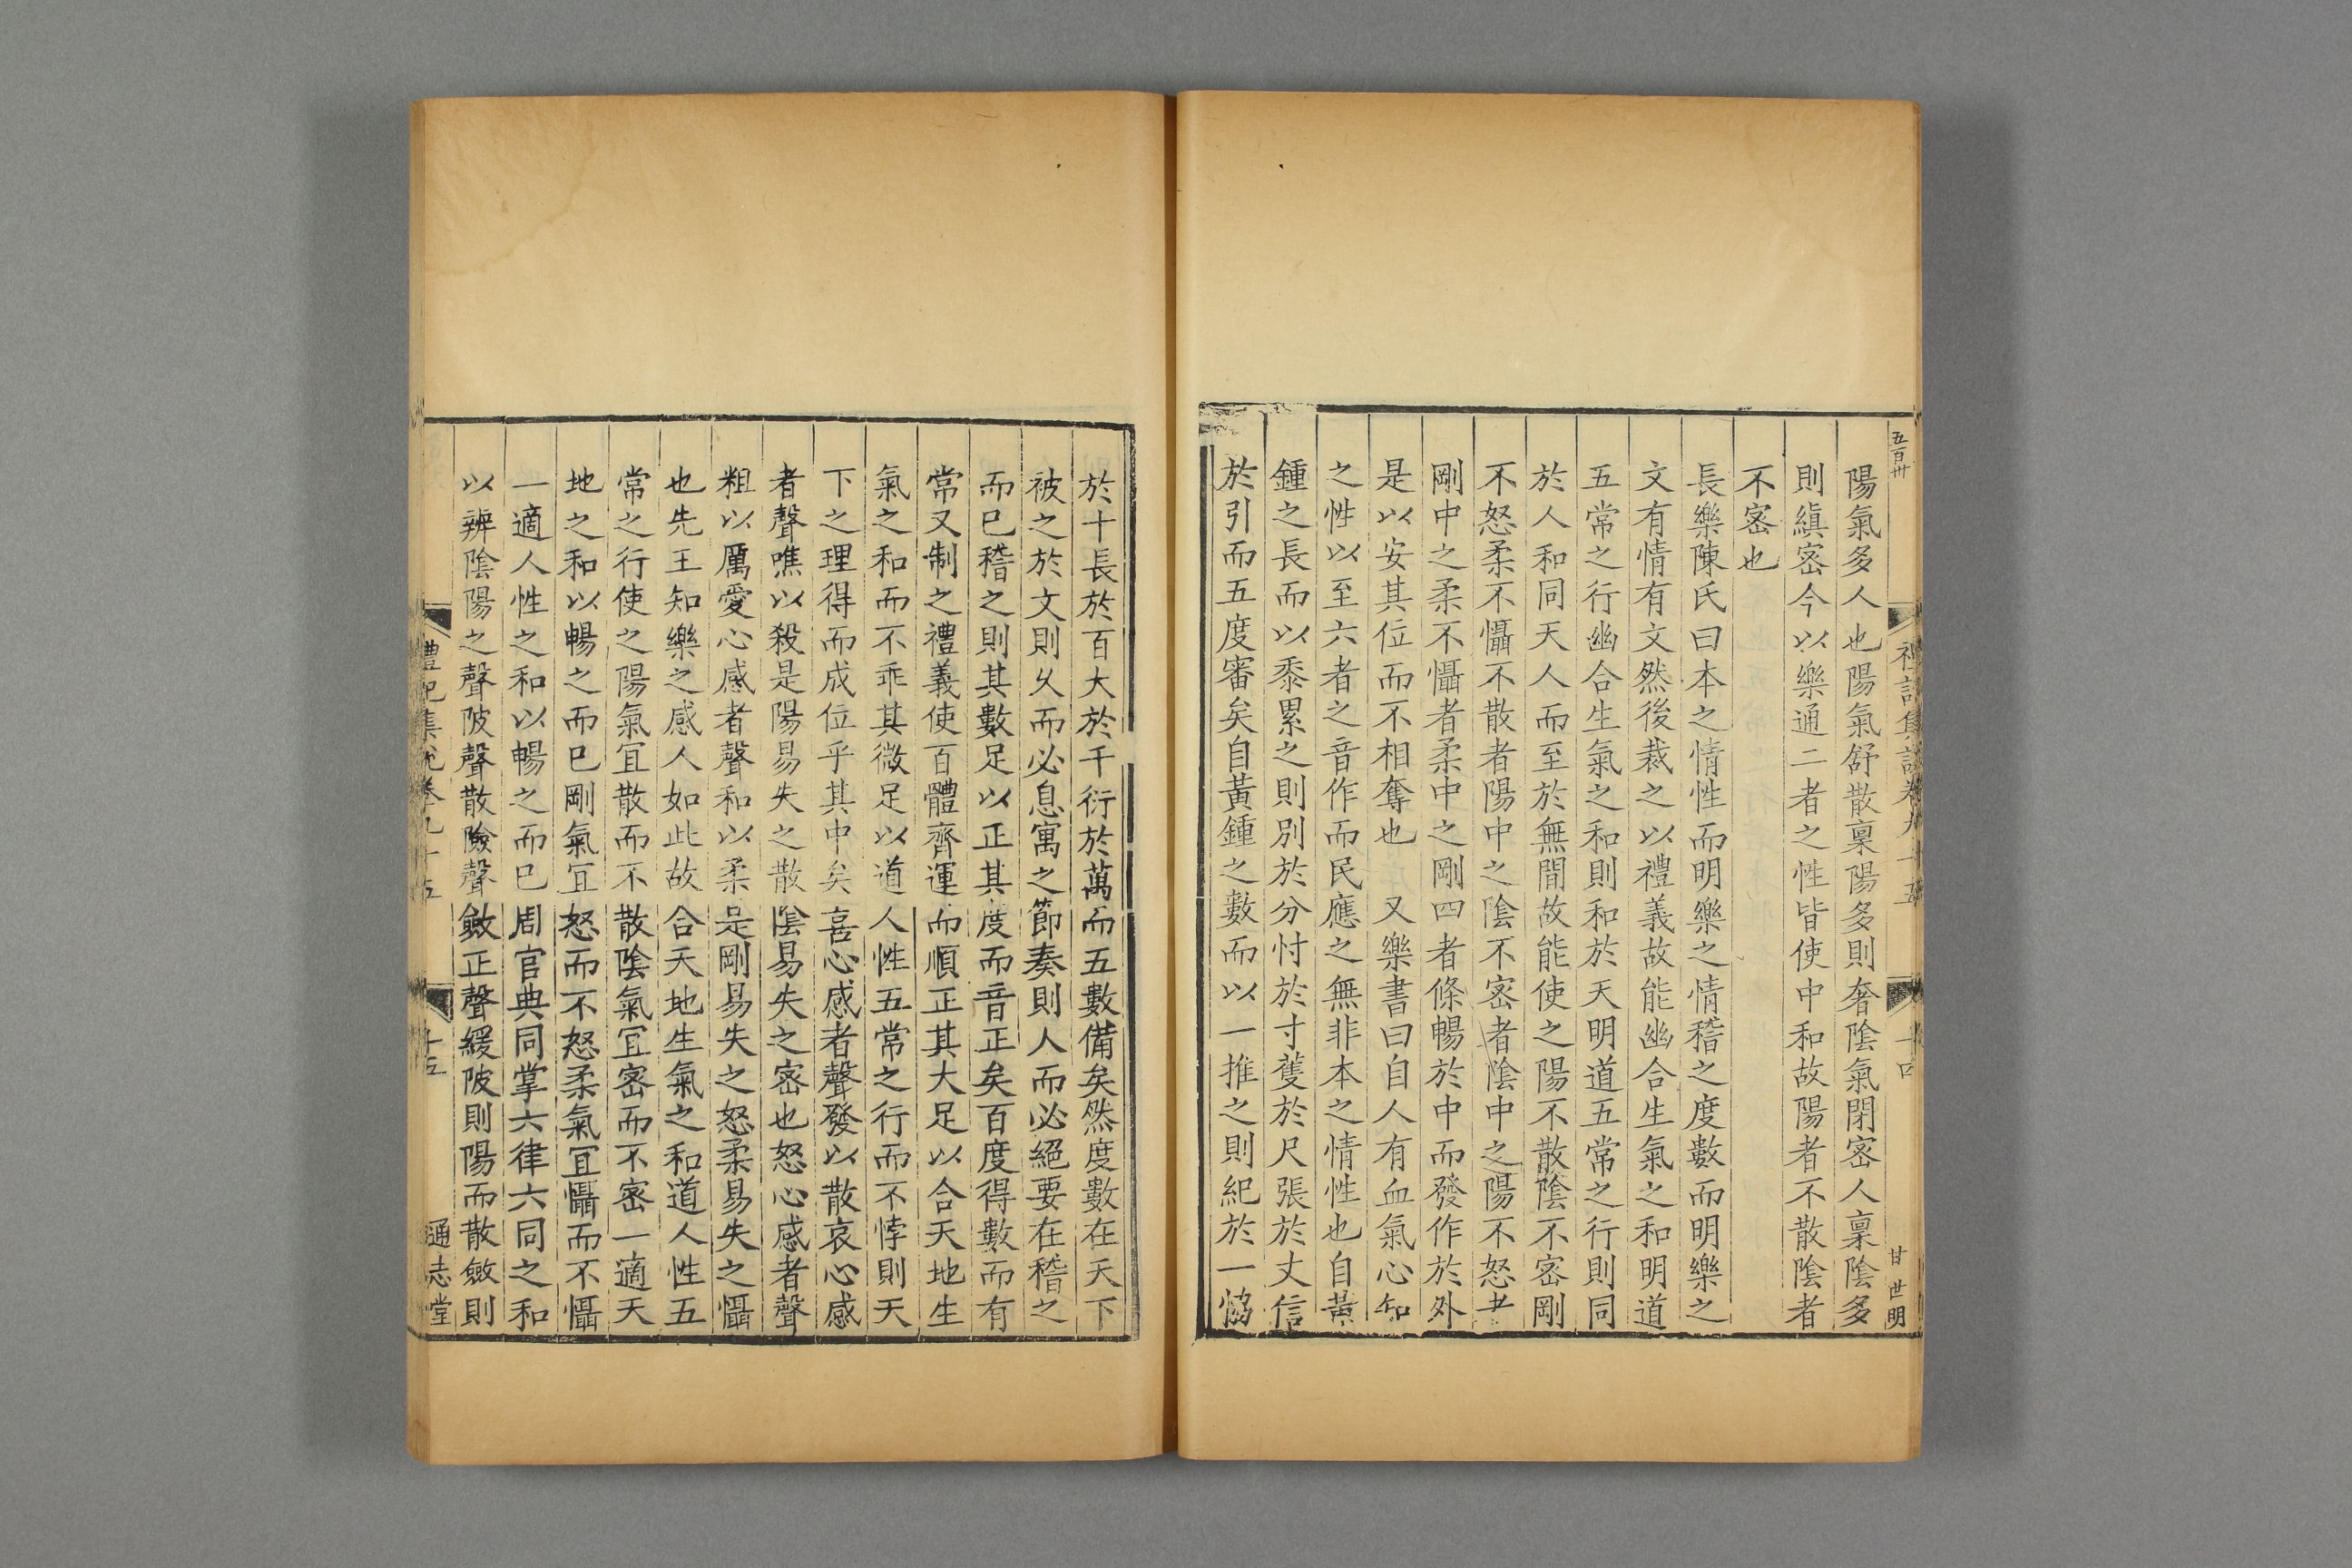 五百卅
禮記集說卷九十五
十四
甘世明
陽氣多人也陽氣舒散稟陽多則奢陰氣閉密人稟陰多
則縝密今以樂通二者之性皆使中和故陽者不散陰者
不密也
長樂陳氏曰本之情性而明樂之情稽之度數而明樂之
文有情有文然後裁之以禮義故能幽合生氣之和明道
五常之行幽合生氣之和則和於天明道五常之行則同
於人和同天人而至於無間故能使之陽不散陰不密剛
不怒柔不懾不散者陽中之陰不密者陰中之陽不怒者
剛中之柔不懾者柔中之剛四者條暢於中而發作於外
是以安其位而不相奪也 又樂書曰自人有血氣心知
之性以至六者之音作而民應之無非本之情性也自黃
鍾之長而以黍累之則別於分忖於寸蒦於尺張於丈信
於引而五度審矣自黃鍾之數而以一推之則紀於一協
於十長於百大於千衍於萬而五數備矣然度數在天下
被之於文則久而必息寓之節奏則人而必絕要在稽之
而已稽之則其數足以正其度而音正矣百度得數而有
常又制之禮義使百體齊運而順正其大足以合天地生
氣之和而不乖其微足以道人性五常之行而不悖則天
下之理得而成位乎其中矣喜心感者聲發以散哀心感
者聲噍以殺是陽易失之散陰易失之密也怒心感者聲
粗以厲愛心感者聲和以柔是剛易失之怒柔易失之懾
也先王知樂之感人如此故合天地生氣之和道人性五
常之行使之陽氣宜散而不散陰氣宜密而不密一適天
地之和以暢之而已剛氣宜怒而不怒柔氣宜懾而不懾
一適人性之和以暢之而已周官典同掌六律六同之和
以辨陰陽之聲陂聲散險聲斂正聲緩陂則陽而散斂則
禮記集說卷九十五
十五
通志堂